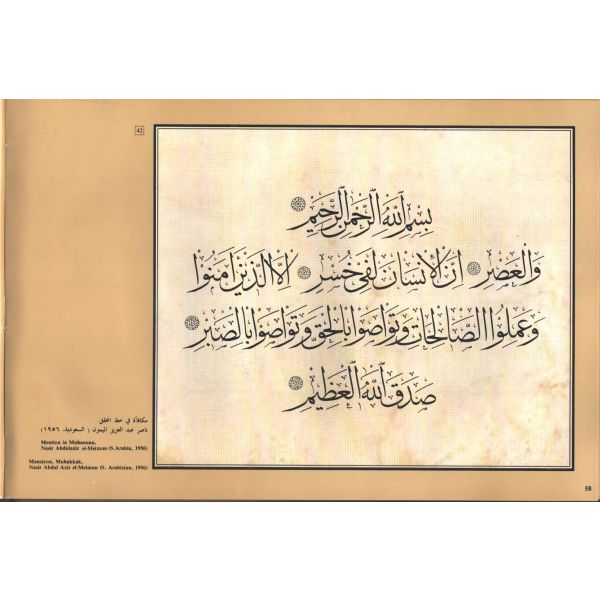 42
بسم الله الرحمن الرحيم
والعصر ان الانسان لفي خسر الا الذين امنوا
وعملوا الصالحات وتواصوا بالحق وتواصوا بالصبر
صدق الله العظيم
مكافأة في خط المحقق
ناصر عبد العزيز الميمون ( السعودية، ١٩٥٦ )
Mention in
Nasir Abdulaziz el-Meimun (S.Arabia, 1956)
Mansiyon, Muhakkak,
Nasir Abdul Aziz el-Meimun (S. Arabistan, 1956)
58